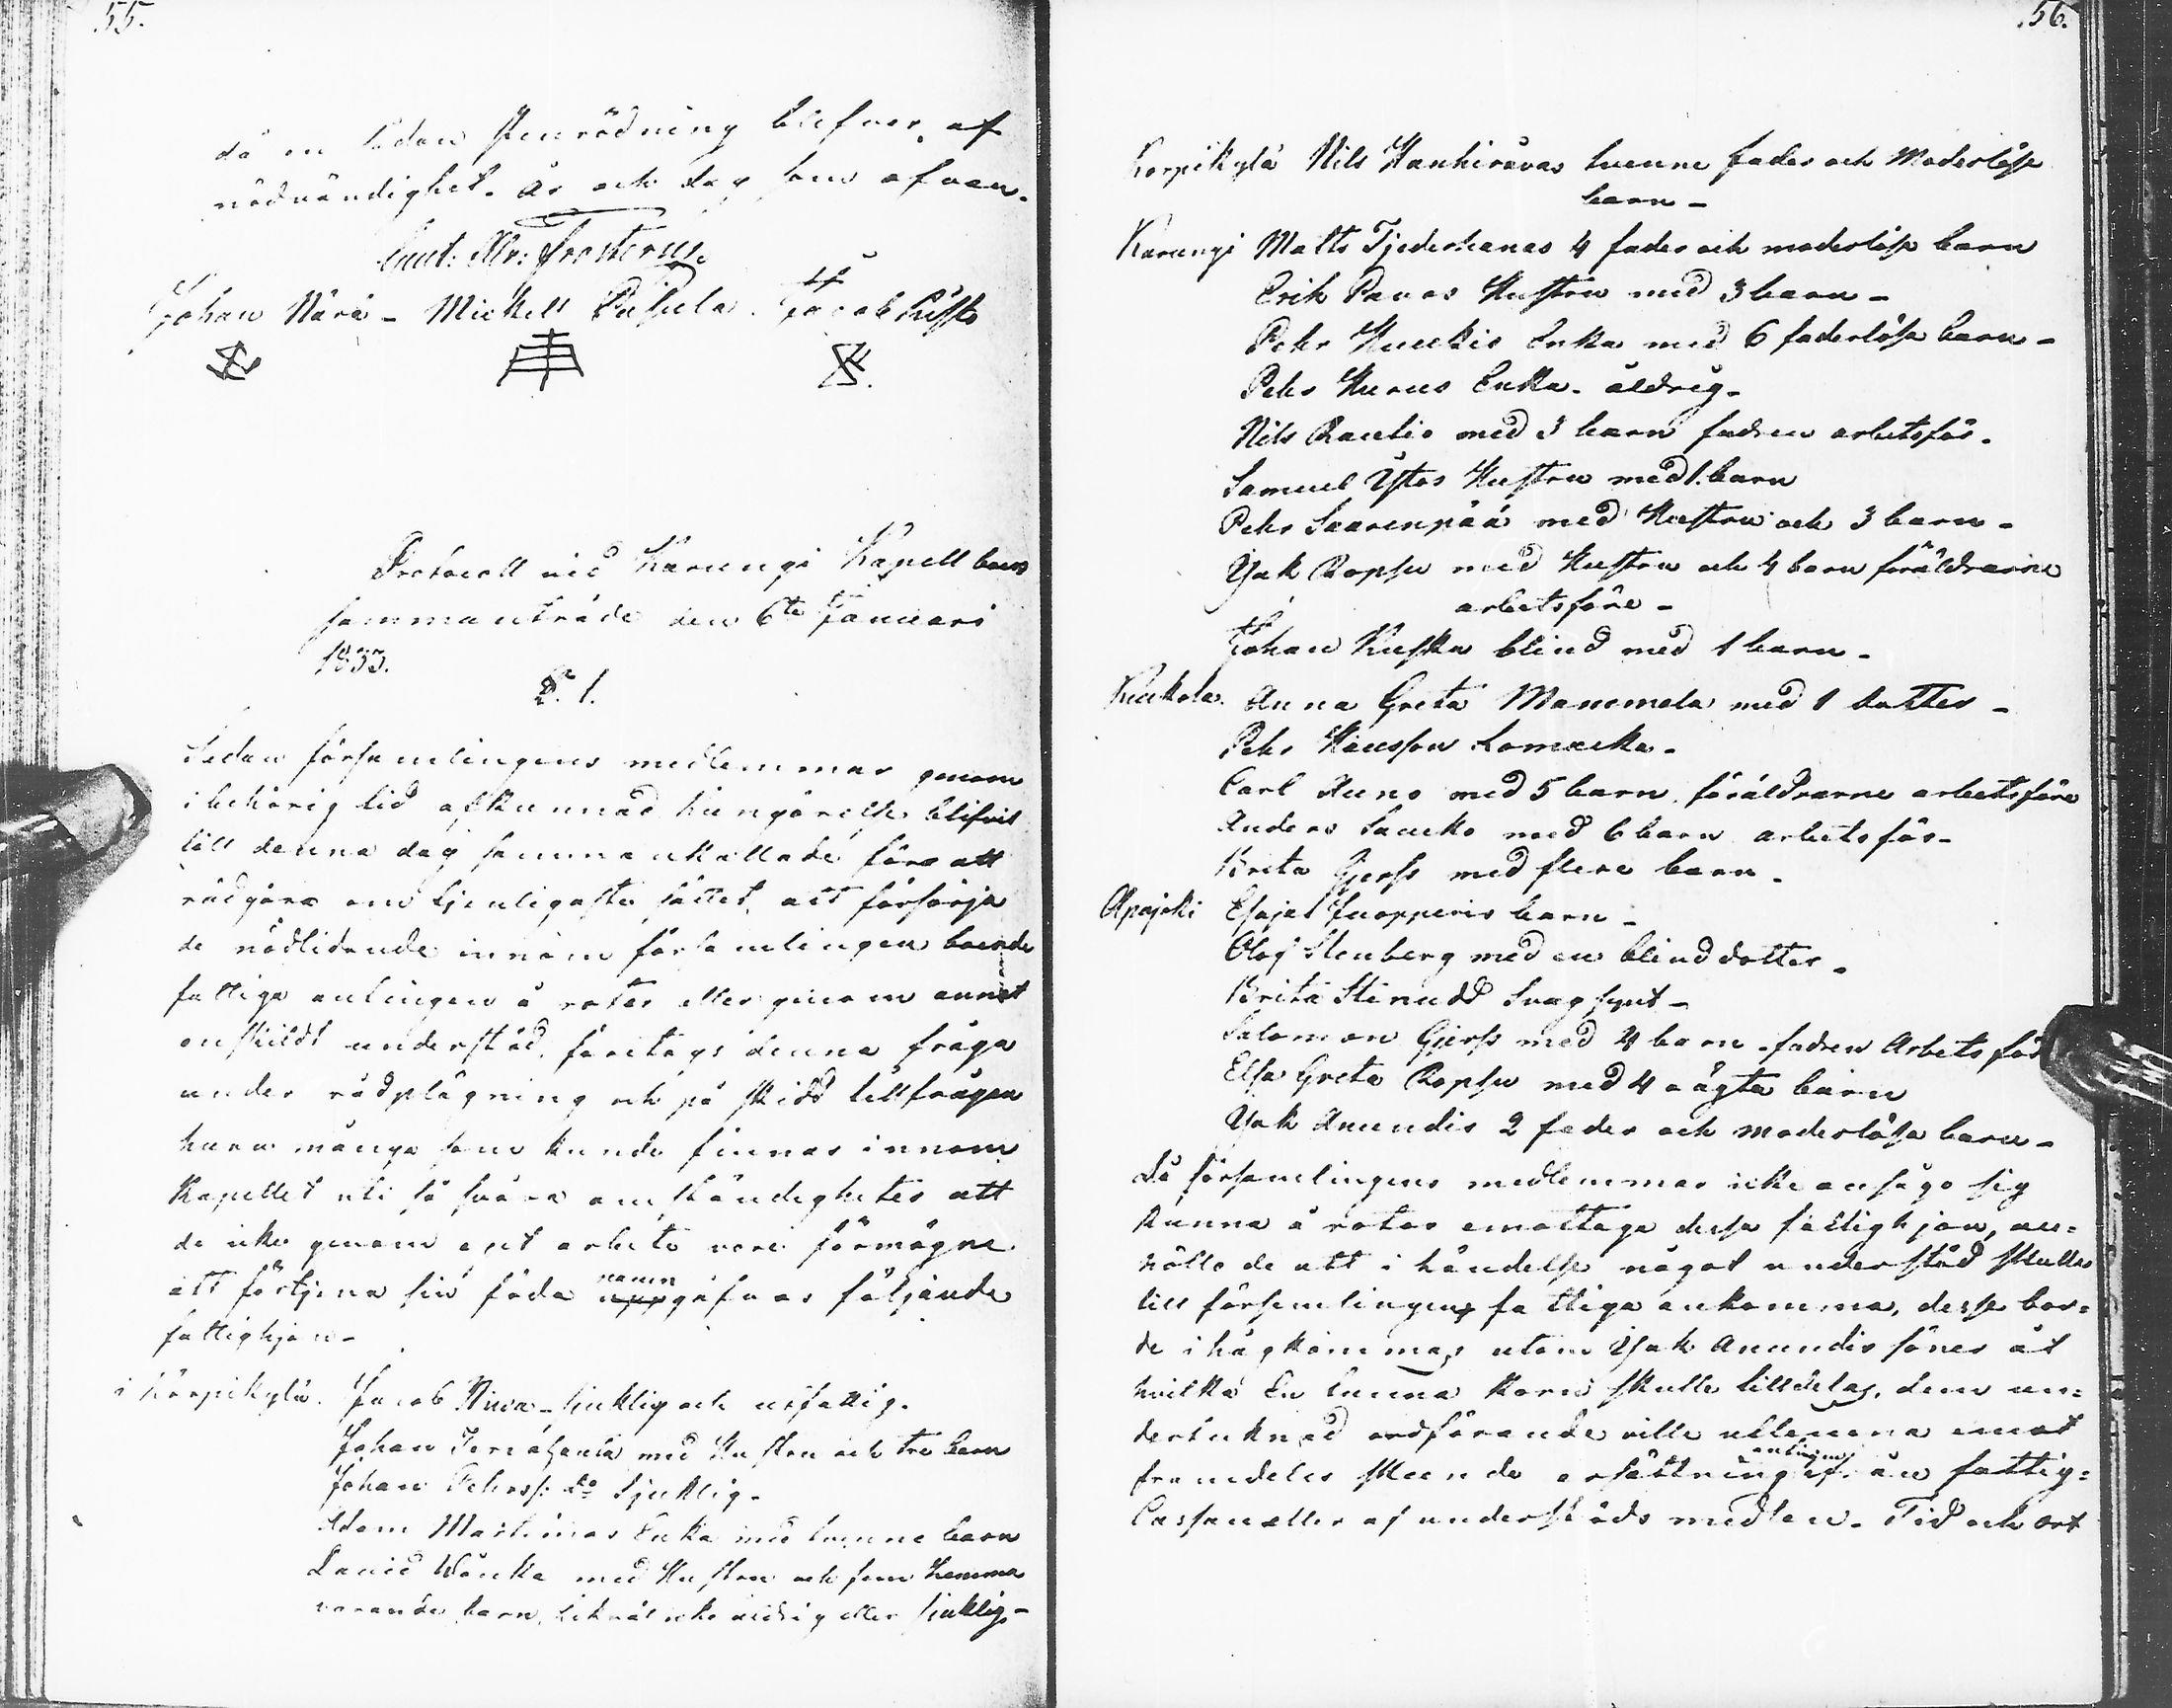 55.
då en sådan stenrödning blefve af
nödvändighet. År och dag som ofvan.
Johan Närä - Mickell Pusula. Jacob Kusto
Protocoll vid Karungi Kapell boers
sammanträde den 6te Januari
1833.
§. 1.
Sedan församlingens medlemmar genom
i behörig tid afkunnad kungörelse blifvit
till denna dag sammankallade före att
rådgöra om tjenligaste sättet, att försörja
de nödlidande innom församlingen boende
fattiga antingen å rotar eller genom annat
enskildt understöd, företogs denna fråga
under rådplägning och på skedd tillfrågan
huru många som kunde finnas innom
Kapellet uti så svåra omständigheter att
de icke genom eget arbete vore förmögne
att förtjena sin föda namngåfvos följande
fattighjon -
i Korpikylä. Jacob Niva - sjuklig och utfattig.
Johan med Hustru och tre barn
Johan Pehrss: do Sjuklig -
Adam Martimos Enka med tvenne barn
David Wänkä med Hustru och fem hemma
varande barn, likväl icke åldrig eller sjuklig -
56.
Korpikylä Nils Kauhiravas tvenne fader och Moderlösa
barn -
Karungi Matts Tjederhanas 4 fader och moderlösa barn
Erik Pavas Hustru med 3 barn -
Pehr Huukis Enka med 6 faderlösa barn -
Pehr Kurus Enka - åldrig -
Nils Rautio med 3 barn fadren arbetsför -
Samuel Ystos Hustru med 1. barn
Pehr Saarenpää med Hustru och 3 barn -
Isak Ropsu med Hustru och 4 barn föräldrarne
arbetsföre -
Johan Kuska blind med 1 barn -
Kuckola. Anna Greta Mammela med 1 dotter -
Pehr Hansson Lomacka -
Carl Auno med 5 barn, föräldrarne arbetsföre
Anders Saucko med 6 barn arbetsför -
Brita Gjerss med flere barn -
Apajoki Esajas Juopperis barn -
Olof Stenberg med en blind dotter -
Brita Stinudd Svagsynt -
Salomon Gjerss med 4 barn - fadren Arbetsför
Elsa Greta Ropsu med 4 oägta barn
Isak Anundis 2 fader och moderlösa barn -
Då församlingens medlemmar icke ansågo sig
kunna å rotar emottaga dessa fattighjon, an=
hölle de att i händelse något understöd skulle
till församlingens fattiga ankomma, desse bor=
de ihågkommas utom Isak Anundis söner åt
hvilka En tunna korn skulle tilldelas, dem un=
dertecknad ordförande ville utlemna emot
framdeles skeende ersättning antingen af fattig=
Cassan eller af understöds medlen - Tid och ort